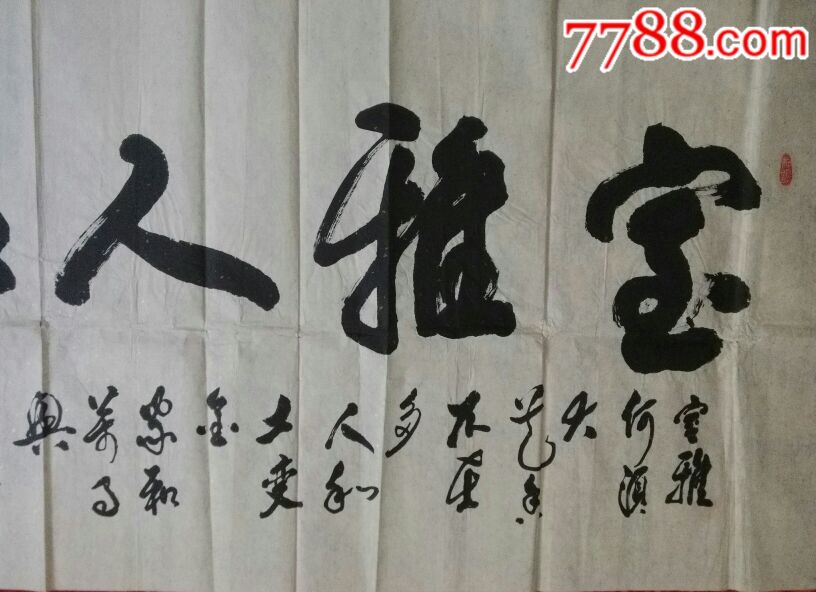 7788.com
室雅人
室雅
何须
大
花香
不在
多
人和
土变
金
家和
万事
兴